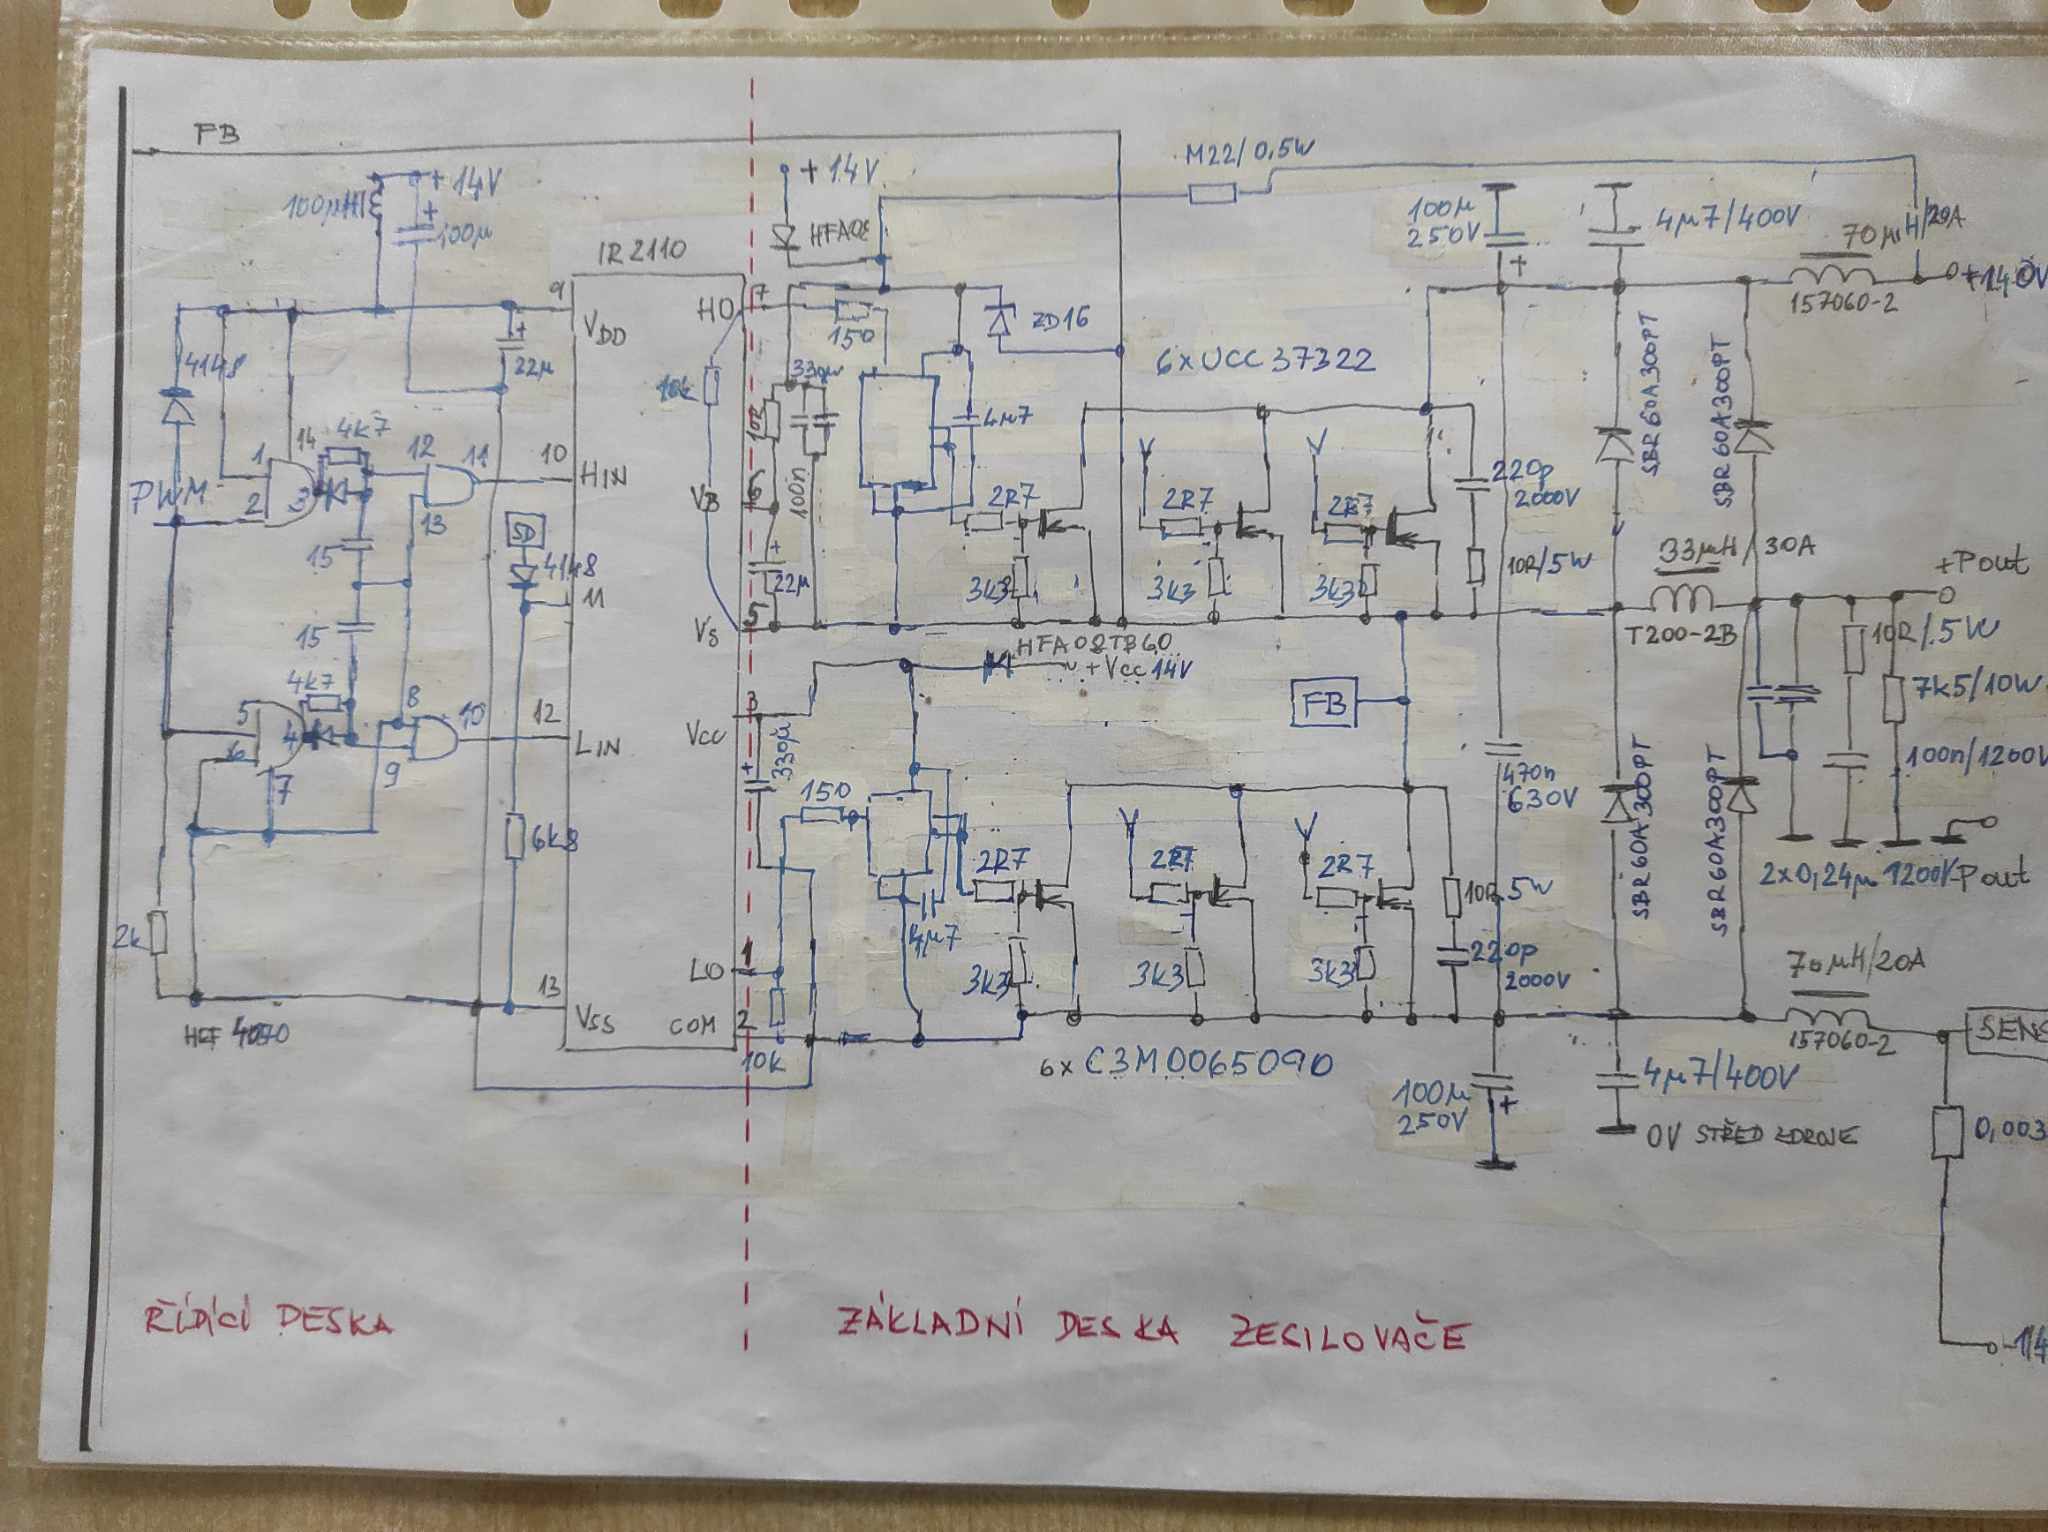 FB
M22/0,5W
+14V
+14V
100µH
100µ
HFA08
100µ
250V
4µ7/400V
70µH/20A
+140V
157060-2
IR2110
9
VDD
HO
7
150
ZD16
4148
22µ
10k
330µ
6xUCC37322
SBR60A300PT
SBR60A300PT
14
4k7
12
11
10
HIN
10R
4µ7
1
2
3
PWM
13
VB
6
100n
2R7
2R7
2R7
220p
2000V
SD
15
4148
11
22µ
3k3
3k3
3k3
10R/5W
33µH/30A
+Pout
VS
5
15
HFA08TB60
T200-2B
10R/5W
+Vcc 14V
4k7
5
6
4
8
10
12
LIN
3
Vcc
FB
7k5/10W
9
7
330µ
470n
630V
100n/1200V
150
SBR60A300PT
SBR60A300PT
6k8
2R7
2R7
2R7
10R
5W
2x0,24µ 1200V
-Pout
2k
4µ7
LO
1
3k3
3k3
3k3
220p
2000V
70µH/20A
13
VSS
COM
2
HEF 4070
10k
157060-2
SENS
6x C3M0065090
100µ
250V
4µ7/400V
0V STŘED ZDROJE
0,003
-14
ŘÍDÍCÍ DESKA
ZÁKLADNÍ DESKA ZESILOVAČE